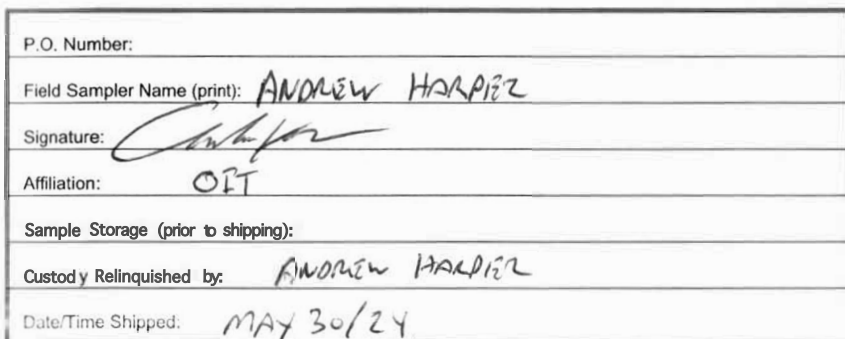 P.O. Number:
Field Sampler Name (print): ANDREW HARPER
Signature:
Affiliation: OIT
Sample Storage (prior to shipping):
Custody Relinquished by: ANDREW HARPER
Date/Time Shipped: MAY 30/24